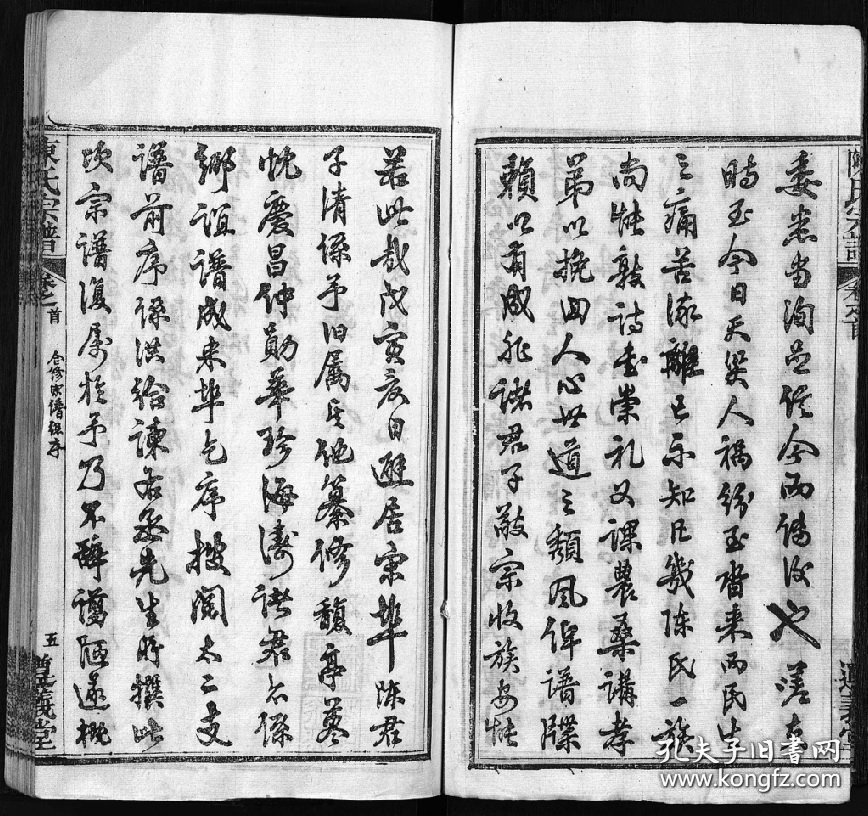 委悉尚洵是從今而傳後也嗟
時至今日天災人禍紛至沓來而民生
之痛苦流離已不知凡幾陳氏一族
尚能敦詩書崇礼又課農桑講孝
弟以挽回人心世道之頽风俾譜牒
賴以有成非諸君子敬宗收族安能
若此哉戊寅夏日避居宗埠陳君
子清係予旧属其他纂修馥亭蓉
忱慶昌仲勛華珍海濤諸君亦係
鄉誼譜成来埠乞序披閱太二支
譜前序係洪給諫右丞先生所撰此
次宗譜復屬於予乃不辭譾陋遂概
陳氏宗譜
卷之首
合修宗譜總序
五
遵義堂
陳氏宗譜
卷之首
遵義堂
孔夫子旧书网
www.kongfz.com